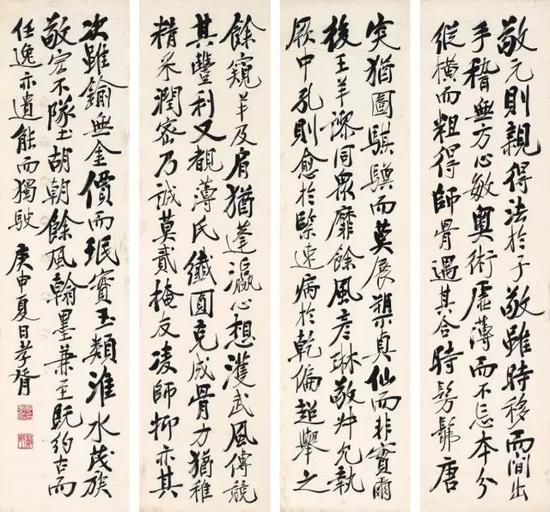 敬元則親得法於子敬雖時移而間出
手稽無方心敏奧術虛薄而不忘本分
縱橫而粗得師骨遇其合時髣髴唐
突猶圖騏驥而莫展塑真仙而非實爾
後王羊同衆靡餘風彥琳敬允執
厥中孔則愈於緊速病於乾偏超舉之
餘窺羊及肩猶蓬瀛心想濩武風傳競
其豐利又觀薄氏纖圓克成骨力猶稚
精采潤密乃誠莫貳掩友凌師抑亦其
次雖鍮無金價而珉實玉類淮水茂族
敬容不隊胡朝餘風翰墨兼至既約古而
任逸亦遺能而獨駛 庚申夏日孝胥